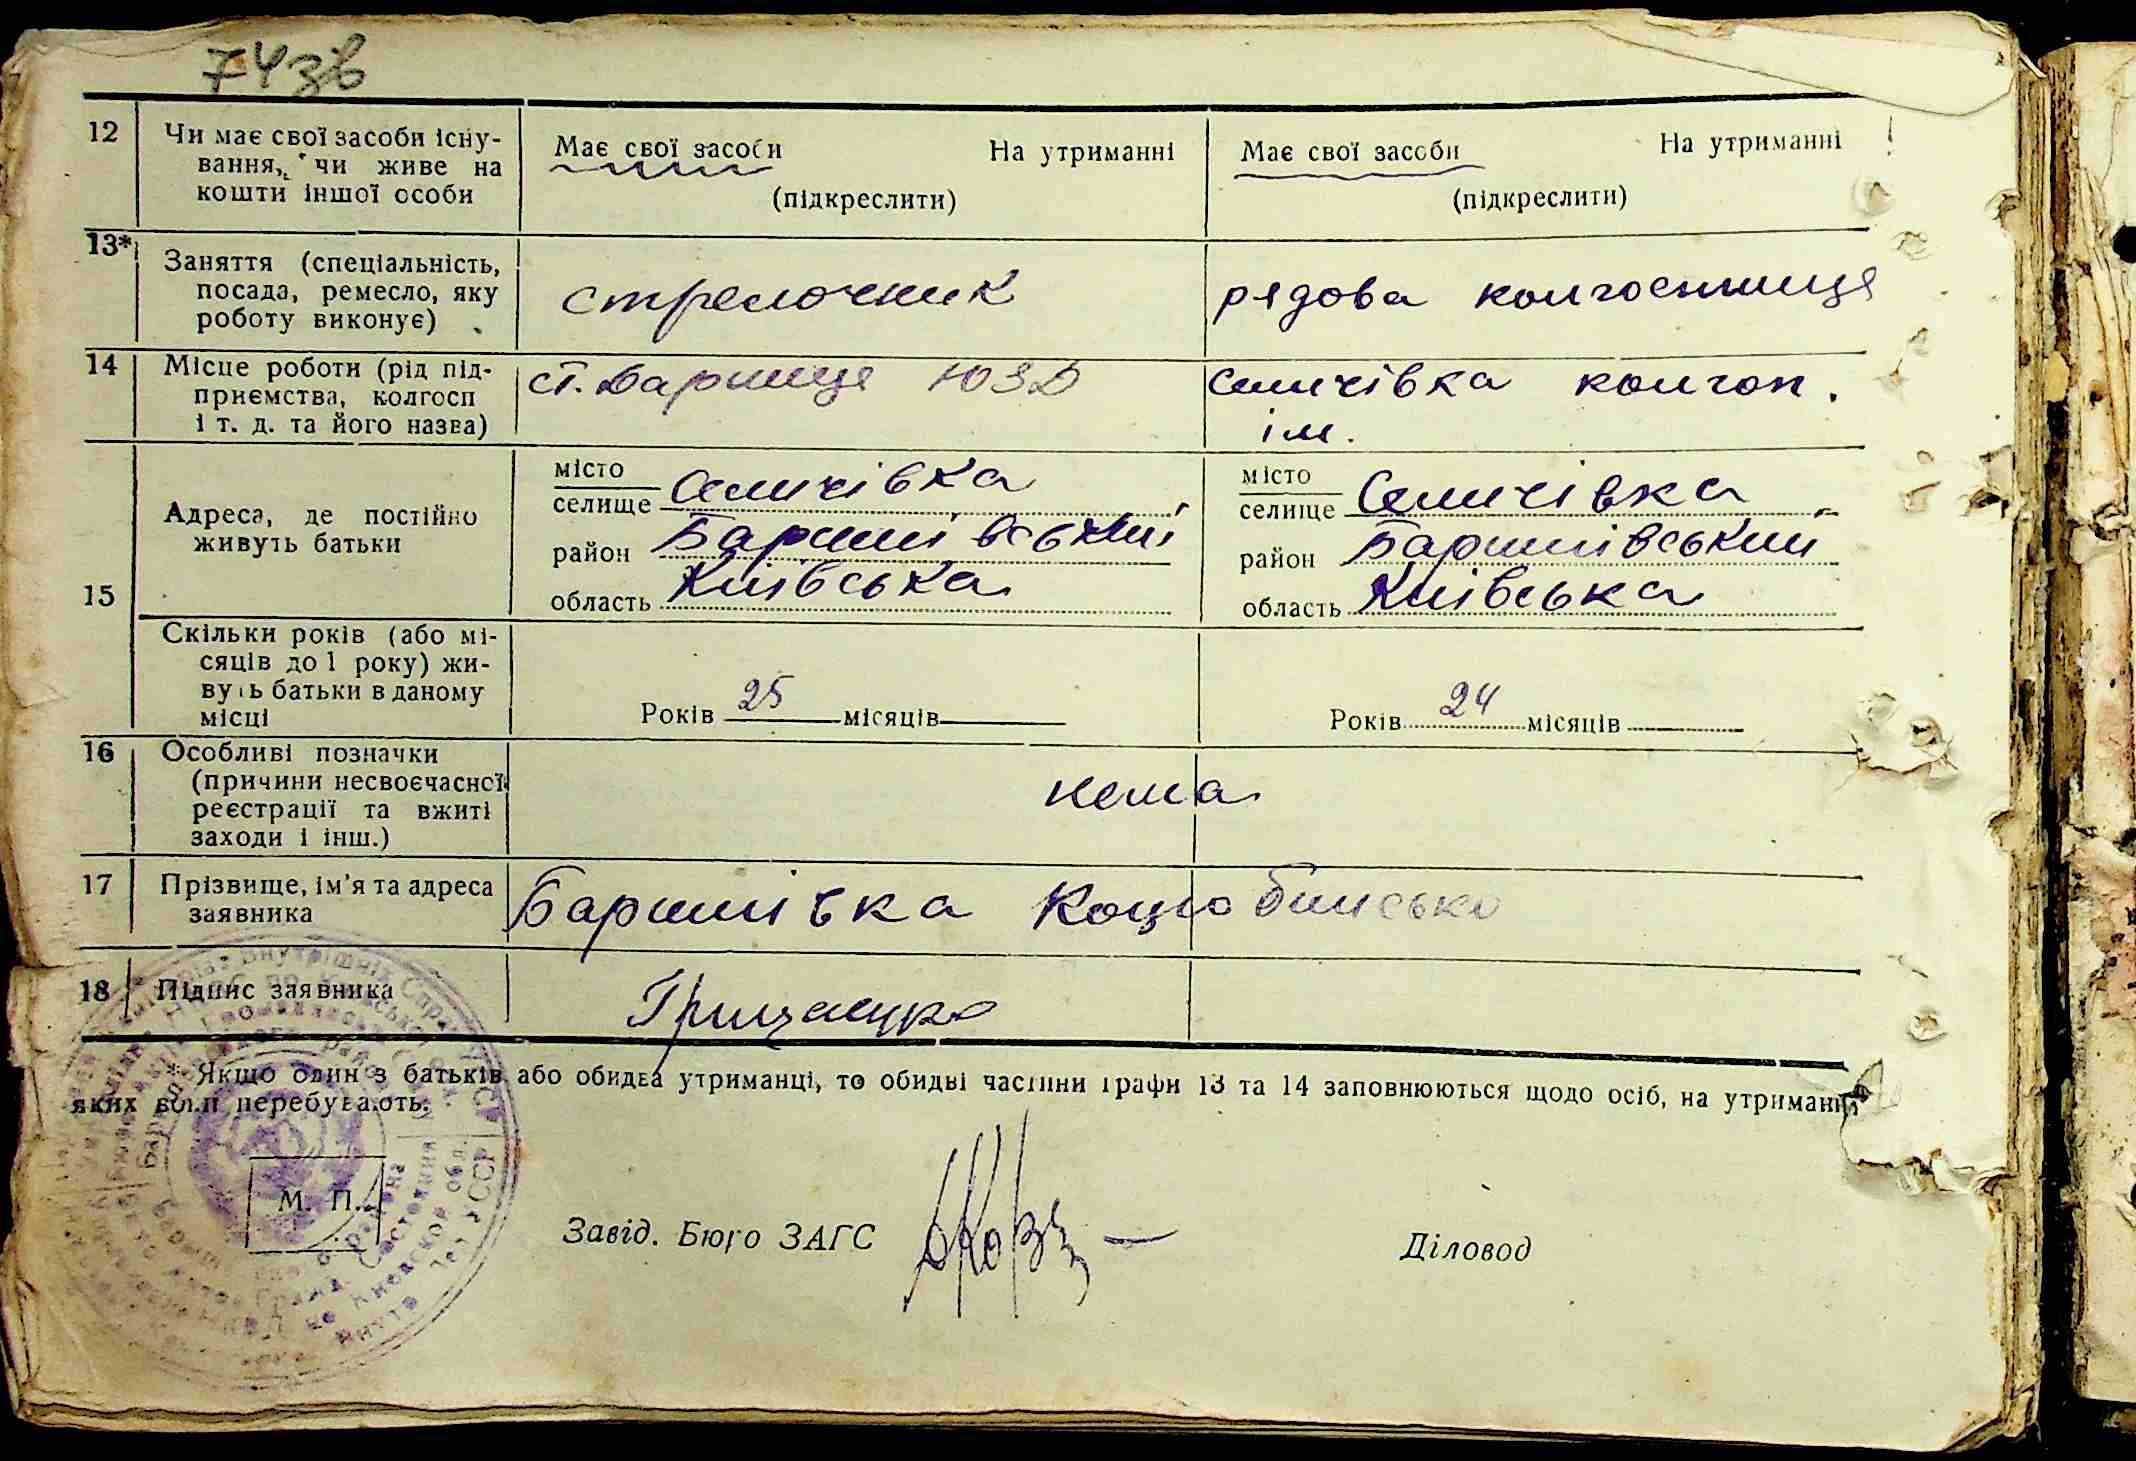 74зв
12 Чи має свої засоби існу-
вання, чи живе на
кошти іншої особи
Має свої засоби На утриманні
(підкреслити)
Має свої засоби На утриманні
(підкреслити)
13* Заняття (спеціальність,
посада, ремесло, яку
роботу виконує)
стрелочник
рядова колгоспниця
14 Місце роботи (рід під-
приємства, колгосп
і т. д. та його назва)
ст. Дарниця ЮЗД
Селичівка колгосп.
ім.
15
Адреса, де постійно
живуть батьки
місто
селище Селичівка
район Баришівський
область Київська
місто
селище Селичівка
район Баришівський
область Київська
Скільки років (або мі-
сяців до 1 року) жи-
вуть батьки в даному
місці
Років 25 місяців
Років 24 місяців
16 Особливі позначки
(причини несвоєчасної
реєстрації та вжиті
заходи і інш.)
нема
17 Прізвище, ім'я та адреса
заявника
Баришівка Коцюбинсько
18 Підпис заявника
Грищенко
* Якщо один з батьків або обидва утриманці, то обидві частини графи 13 та 14 заповнюються щодо осіб, на утриманні
яких вони перебувають.
М. П.
Завід. Бюро ЗАГС
Діловод